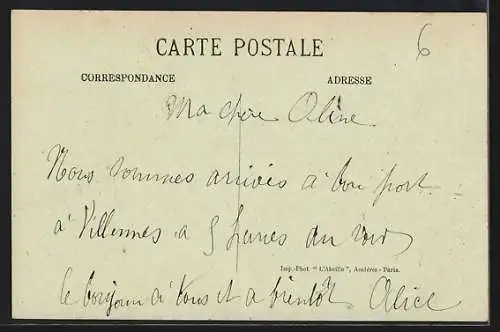 6
CARTE POSTALE
CORRESPONDANCE ADRESSE
Ma chère Aline
Nous sommes arrivés à bon port
à Villennes a 5 hures du soir
Imp.-Phot "L'Abeille", Asnières-Paris.
le bonjour à tous et a bientôt Alice